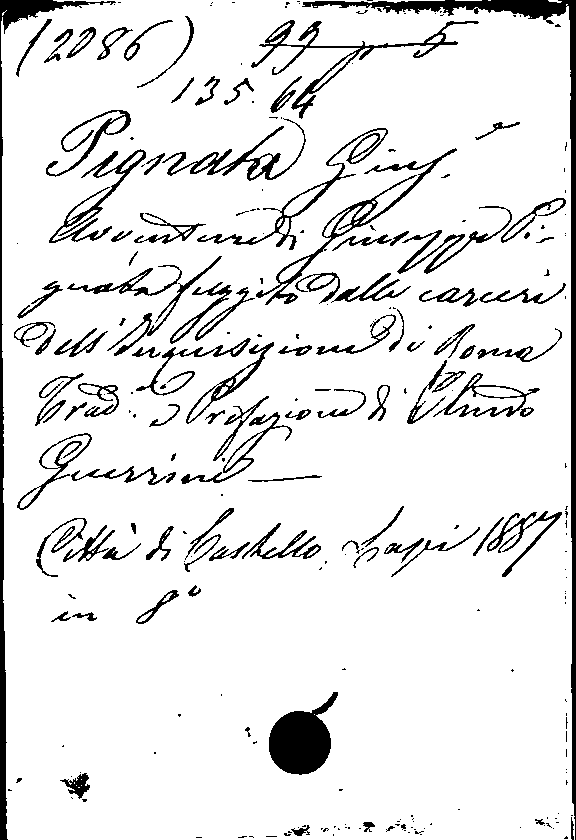 (2086) 99 p 5
135.64
Pignata Giuse.
Avventure di Giuseppe Pi-
gnata fuggito dalle carceri
dell'Inquisizione di Roma
Trad.ne e Prefazione di Olindo
Guerrini —
Città di Castello. Lapi 1887
in 8º